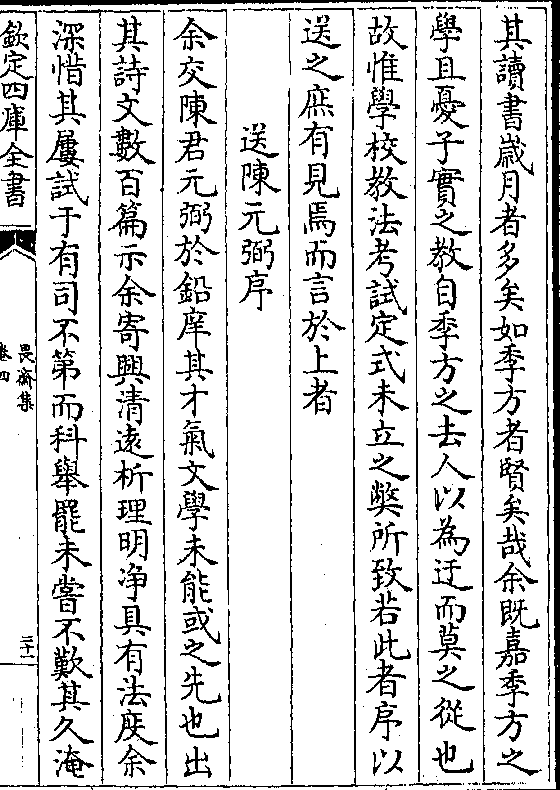 其讀書歲月者多矣如季方者賢矣哉余既嘉季方之
學且憂子實之教自季方之去人以為迂而莫之從也
故惟學校教法考試定式未立之弊所致若此者序以
送之庶有見焉而言於上者
送陳元弼序
余交陳君元弼於鉛庠其才氣文學未能或之先也出
其詩文數百篇示余寄興清遠析理明净具有法度余
深惜其屢試于有司不第而科舉罷未嘗不歎其久淹
欽定四庫全書
畏齋集
卷四
三十一